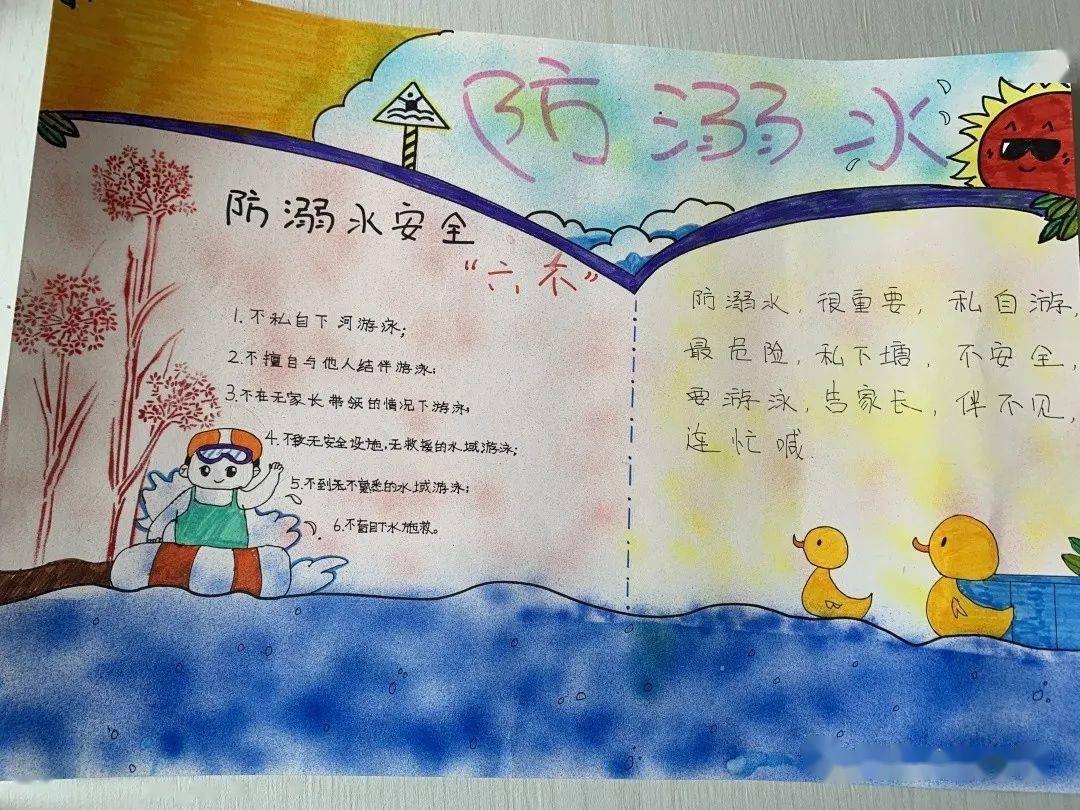 防溺水
防溺水安全
“六不”
1.不私自下河游泳；
2.不擅自与他人结伴游泳；
3.不在无家长带领的情况下游泳；
4.不到无安全设施，无救援的水域游泳；
5.不到无不熟悉的水域游泳；
6.不盲目下水施救。
防溺水，很重要，私自游，
最危险，私下塘，不安全，
要游泳，告家长，伴不见，
连忙喊.